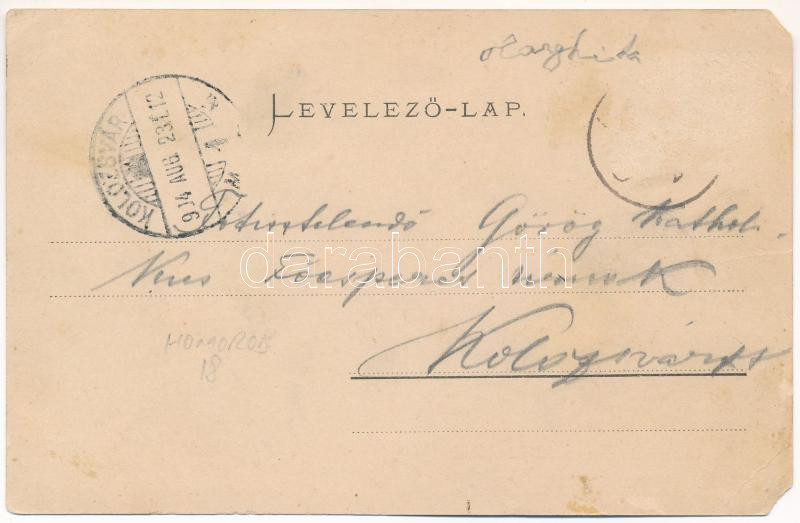 Harghita
LEVELEZŐ-LAP.
KOLOZSVÁR
904 AUG. 23
Tisztelendő Görög Kathol.
kus Esperes urnak
Kolozsvárt
HOMOROD
18
darabanth